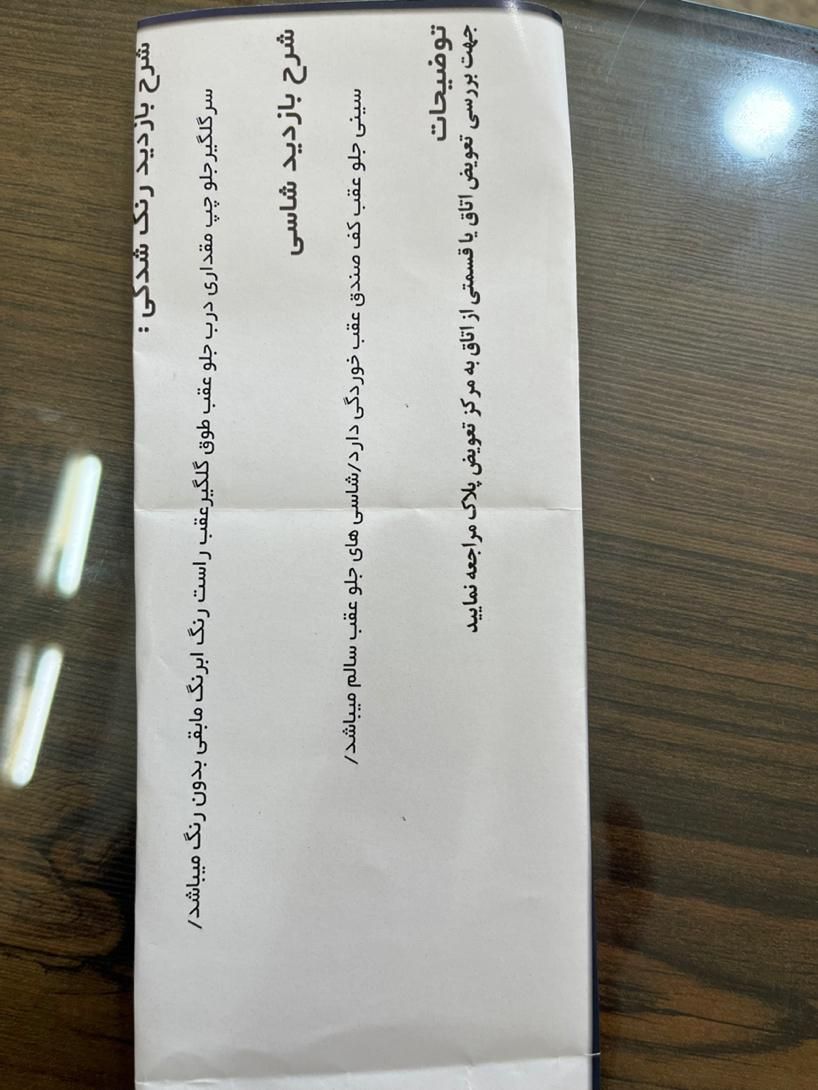 شرح بازدید رنگ شدگی :
سرگلگیرجلو چپ مقداری درب جلو عقب طوق گلگیرعقب راست رنگ ابرنگ مابقی بدون رنگ میباشد/
شرح بازدید شاسی
سینی جلو عقب کف صندق عقب خوردگی دارد/شاسی های جلو عقب سالم میباشد/
توضیحات
جهت بررسی تعویض اتاق یا قسمتی از اتاق به مرکز تعویض پلاک مراجعه نمایید